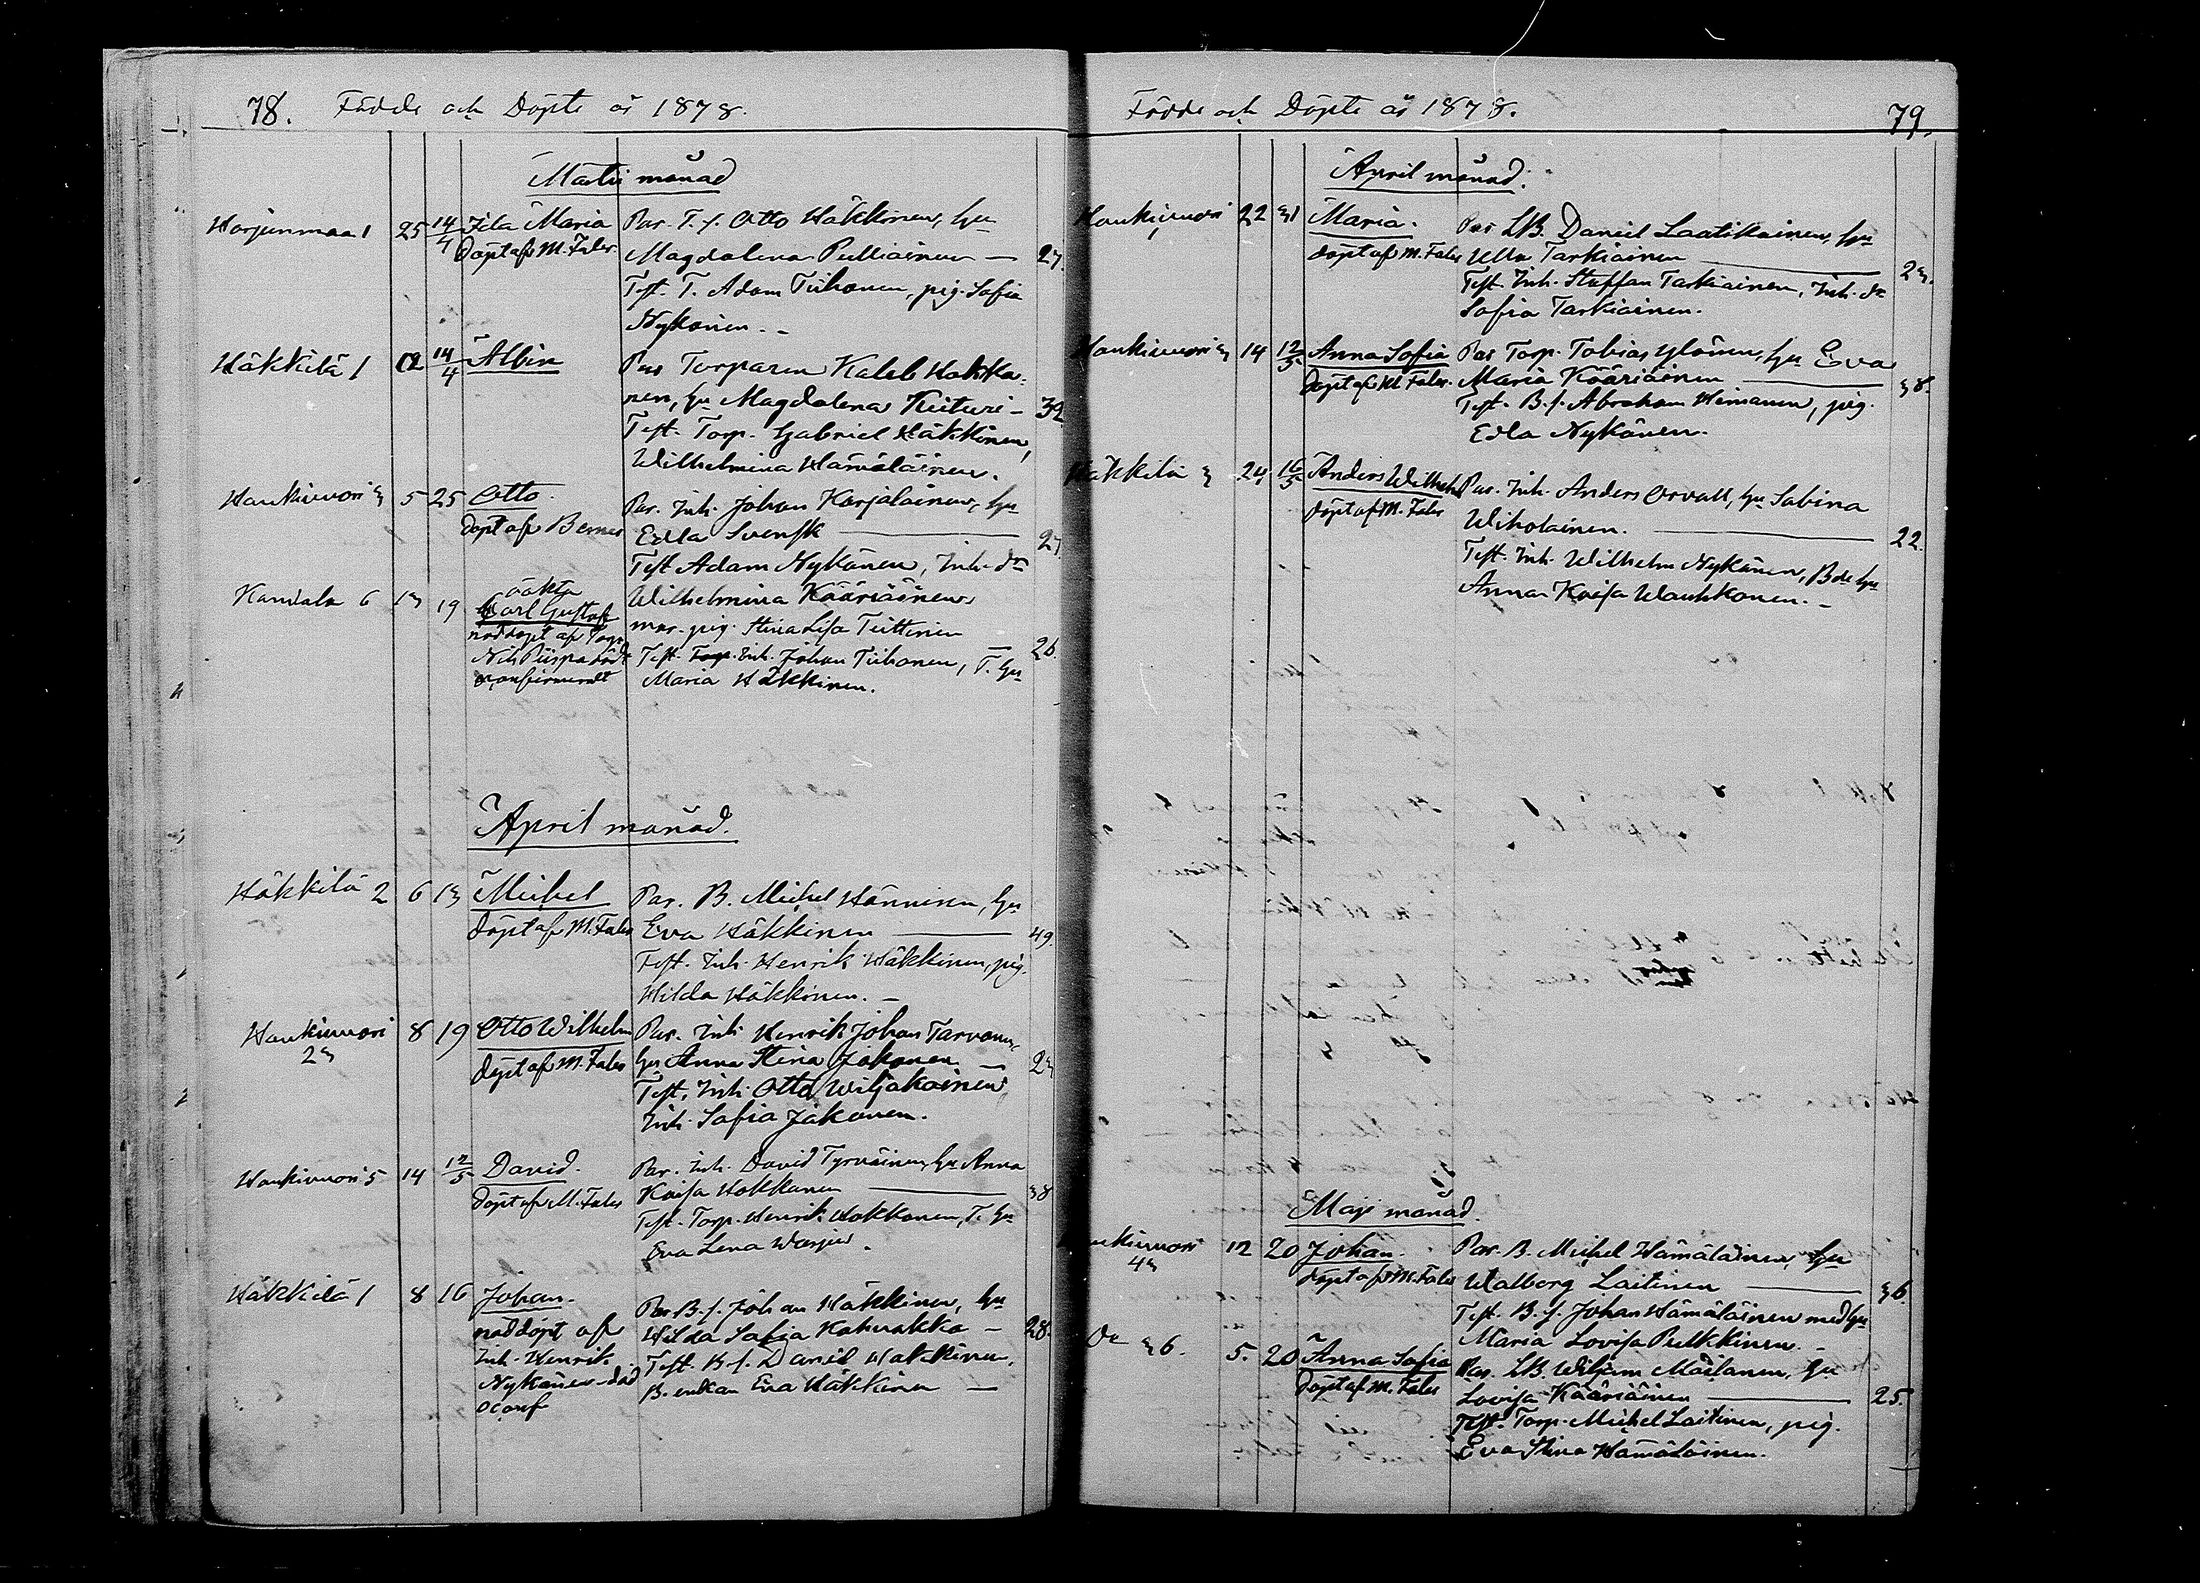 78. Födde och Döpte år 1878.
Martii månad
Harjunmaa 1 25 14/4 Ida Maria Par. T.f. Otto Häkkinen, hu
döpt af M. Fabr. Magdalena Pulliainen — 27.
Test. T. Adam Tiihonen, pig. Sofia
Nykänen. –
Häkkilä 1 12 14/4 Albin Par Torparen Kaleb Hokka-
nen, hu Magdalena Kuituri – 39
Test. Torp. Gabriel Häkkinen,
Wilhelmina Hämäläinen.
Haukivuori 3 5 25 Otto. Par. Inh. Johan Karjalainen, hu
döpt af Berner Edla Svensk — 27
Test Adam Nykänen, Inh. dr
Wilhelmina Kääriäinen
Kantala 6 13 19 oäkta
Carl Gustaf mor. pig. Stina Lisa Tiittinen
nöddöpt af Torp. — 26.
Nils Piispa död Test. Inh. Johan Tiihonen, T. hu
oconfirmeradt Maria Häkkinen.
April månad.
Häkkilä 2 6 13 Michel Par. B. Michel Hänninen, hu
döpt af M. Fabr Eva Häkkinen — 49.
Test. Inh. Henrik Häkkinen, pig.
Hilda Häkkinen. –
Haukivuori 8 19 Otto Wilhelm Par. Inh Henrik Johan Tarvonen,
23 döpt af M. Fabr hu Anna Stina Jakonen 23
Test. Inh. Otto Wiljakainen
Inh. Sofia Jakonen.
Haukivuori 5 14 12/5 David. Par. Inh. David Tyrväinen, hu Anna
döpt af M. Fabr Kaisa Hokkanen — 38
Test. Torp. Henrik Hokkanen, T. hu
Eva Lena Warjus.
Häkkilä 1 8 16 Johan. Par B.f. Johan Häkkinen, hu
nöddöpt af Hilda Sofia Kahvakka – 28.
Inh. Henrik Test. B.f. Daniel Häkkinen,
Nykänen – död B. enkan Eva Häkkinen —
oconf
Födde och Döpte år 1878. 79.
April månad.
Haukivuori 22 31 Maria. Par LB. Daniel Laatikainen, hu
döpt af M. Fabr Ulla Tarkiainen — 23.
Test. Inh. Staffan Tarkiainen, Inh. dr
Sofia Tarkiainen.
Haukivuori 3 14 12/5 Anna Sofia Par Torp. Tobias Ylönen, hu Eva
döpt af M. Fabr. Maria Kääriäinen — 38.
Test. B.f. Abraham Heimanen, pig.
Edla Nykänen.
Häkkilä 3 24 16/5 Anders Wilhelm Par. Inh. Anders Orvall, hu Sabina
döpt af M. Fabr Wiholainen. — 22.
Test. Inh. Wilhelm Nykänen, Bde hu
Anna Kaisa Wauhkonen. –
Maji månad.
Haukivuori 12 20 Johan. Par. B. Michel Hämäläinen, hu
43 döpt af M. Fabr Walborg Laitinen — 36.
Test. B.f. Johan Hämäläinen med hu
Maria Lovisa Pulkkinen. –
Do 36. 5. 20 Anna Sofia Par. LB. Wiljam Moilanen, hu
döpt af M. Fabr Lovisa Kääriäinen — 25.
Test. Torp. Michel Laitinen, pig.
Eva Stina Hämäläinen.